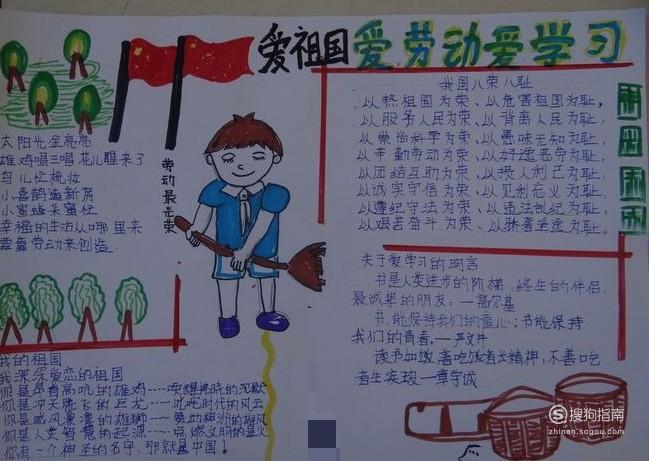 爱祖国爱劳动爱学习
太阳光金亮亮
雄鸡唱三唱花儿醒来了
鸟儿忙梳妆
小喜鹊造新房
小蜜蜂采蜜忙
幸福的生活从哪里来
要靠劳动来创造.
劳动最光荣
我国八荣八耻
以热爱祖国为荣、以危害祖国为耻,
以服务人民为荣、以背离人民为耻,
以崇尚科学为荣、以愚昧无知为耻,
以辛勤劳动为荣、以好逸恶劳为耻,
以团结互助为荣、以损人利己为耻,
以诚实守信为荣、以见利忘义为耻,
以遵纪守法为荣、以违法乱纪为耻,
以艰苦奋斗为荣、以骄奢淫逸为耻。
关于爱学习的名言
书是人类进步的阶梯,终生的伴侣,
最诚挚的朋友。—高尔基
书,能保持我们的童心;书能保持
我们的青春。—严文井
读书如饭,善吃饭者长精神,不善吃
者生疾玻—章学诚
我的祖国
我深深爱恋的祖国
你是昂首高吭的雄鸡----唤醒拂晓的沉默
你是冲天腾飞的巨龙----叱咤时代的风云
你是威风凛凛的雄狮----舞动神州的雄风
你是人类智慧的起源----点燃文明的星火
你有一个神圣的名字,那就是中国!
搜狗指南
zhinan.sogou.com